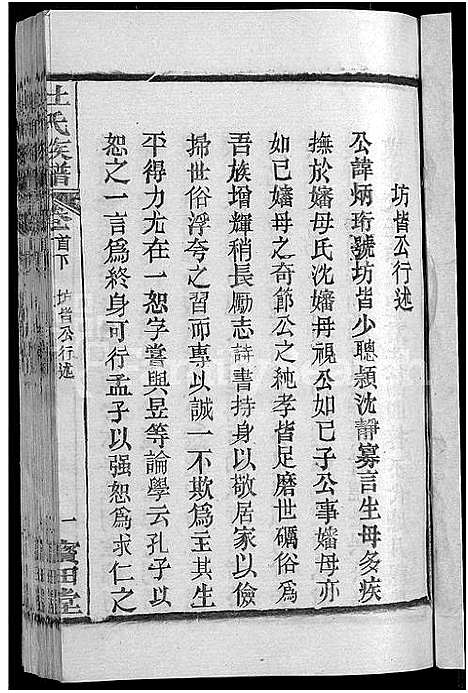 坊皆公行述
公諱炳珩號坊皆少聰穎沈靜寡言生母多疾
撫於嬸母氏沈嬸母視公如已子公事嬸母亦
如已嬸母之奇節公之純孝皆足磨世礪俗爲
吾族增輝稍長勵志詩書持身以敬居家以儉
掃世俗浮夸之習而專以誠一不欺爲主其生
平得力尤在一恕字嘗與昱等論學云孔子以
恕之一言爲終身可行孟子以强恕爲求仁之
杜氏族譜
首下
坊皆公行述
一
寶田堂